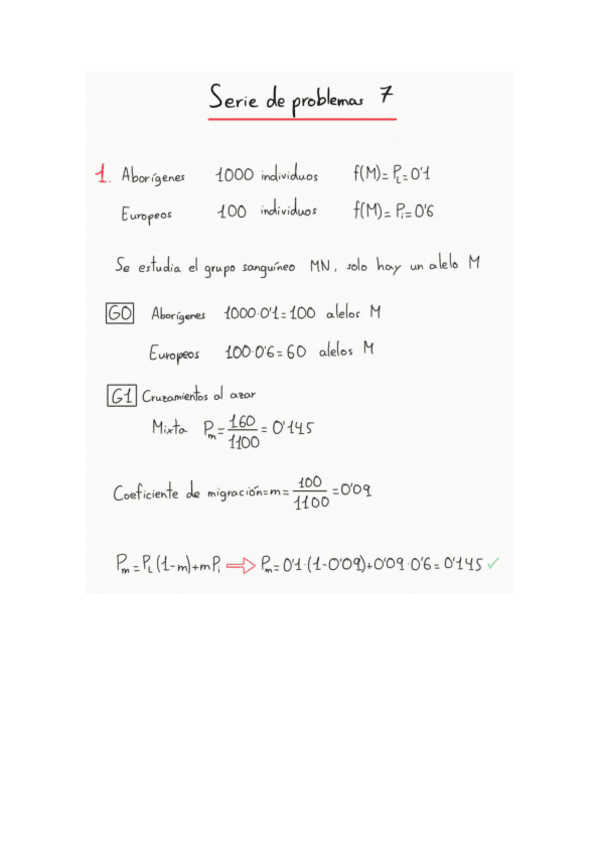 Serie de problemas 7
1. Aborígenes 1000 individuos f(M)=P_L=0'1
Europeos 100 individuos f(M)=P_i=0'6
Se estudia el grupo sanguíneo MN, solo hay un alelo M
G0 Aborígenes 1000·0'1=100 alelos M
Europeos 100·0'6=60 alelos M
G1 Cruzamientos al azar
Mixta P_m=160/1100=0'145
Coeficiente de migración=m=100/1100=0'09
P_m=P_L(1-m)+mP_i ⇒ P_m=0'1·(1-0'09)+0'09·0'6=0'145 ✓